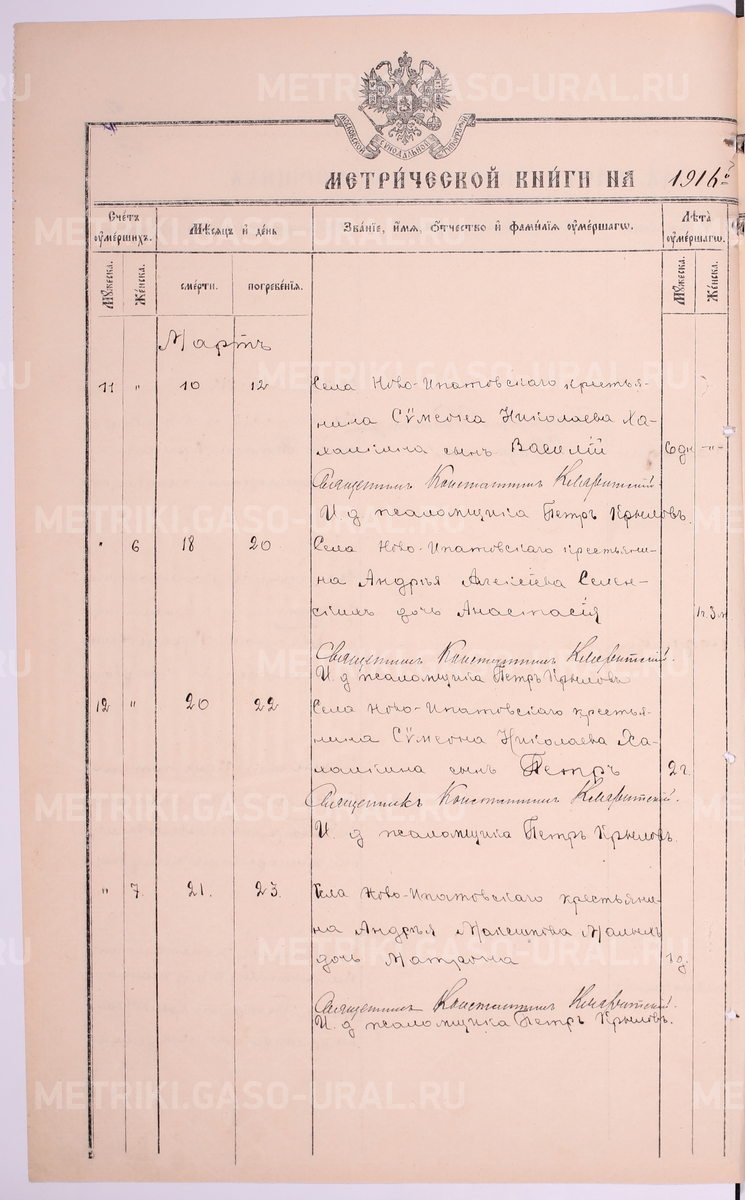 МОСКОВСКОЙ СѴНОДАЛЬНОЙ ТИПОГРАФІИ
МЕТРИ́ЧЕСКОЙ КНИ́ГИ НА 1916 г.
Сче́тъ ᲂу҆ме́ршихъ.
Мѣ́сѧцъ и҆ де́нь
Зва́нїе, и҆́мѧ, ѻ҆́тчество и҆ фами́лїѧ ᲂу҆ме́ршагѡ.
Лѣ́та ᲂу҆ме́ршагѡ.
Мꙋ́жеска.
Же́нска.
сме́рти.
погребе́нїѧ.
Мꙋ́жеска.
Же́нска.
Мартъ
11 " 10 12 Села Ново-Ипатовскаго крестья-
нина Сѵмеона Николаева Ха-
халкина сынъ Василій 6 дн. -"-
Священникъ Константинъ
И. д. псаломщика Петръ Крыловъ.
" 6 18 20 Села Ново-Ипатовскаго крестьяни-
на Андрея Алексіева Селен-
скихъ дочь Анастасія 1 г. 3 м
Священникъ Константинъ
И. д. псаломщика Петръ Крыловъ
12 " 20 22 Села Ново-Ипатовскаго крестья-
нина Сѵмеона Николаева Ха-
халкина сынъ Петръ 2 г.
Священникъ Константинъ
И. д. псаломщика Петръ Крыловъ.
" 7. 21. 23. Села Ново-Ипатовскаго крестьяни-
на Андрея Максимова Малыхъ
дочь Матрона 1 г.
Священникъ Константинъ
И. д. псаломщика Петръ Крыловъ.
METRIKI.GASO-URAL.RU